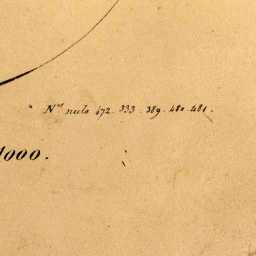 Nos nuls 172. 333. 389. 480. 481.
1000.